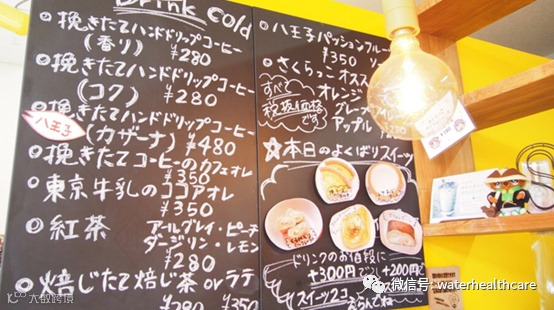 Drink cold
◎挽きたてハンドドリップコーヒー
(香り) ¥280
◎挽きたてハンドドリップコーヒー
(コク) ¥280
◎挽きたてハンドドリップコーヒー
八王子
(カザーナ) ¥480
◎挽きたてコーヒーのカフェオレ
¥350
◎東京牛乳のココアオレ
¥350
◎紅茶 アールグレイ・ピーチ
ダージリン・レモン
¥280
◎焙じたて焙じ茶 orラテ
¥280 ¥350
◎八王子パッションフルーツ
¥350 ソー
◎さくらっこ オスス
オレンジ
グレープ
アップル
¥280
すべて
税抜価格
です
☆本日のよくばりスイーツ
ドリンクのお値段に
+300円で
+200円
スイーツ2コ
えらんでね
微信号: waterhealthcare
大数跨境